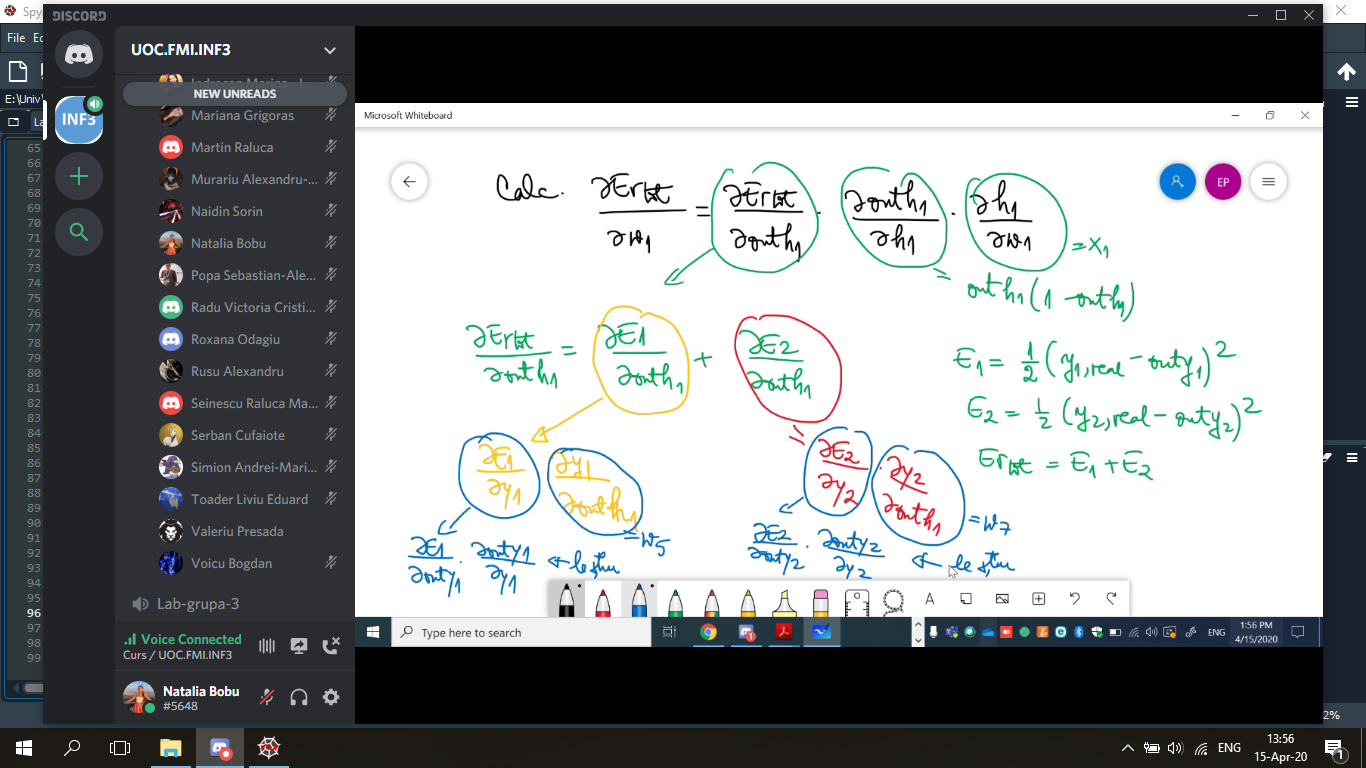 Spy
File Ec
E:\Univ\
La
65
66
67
68
69
70
71
72
73
74
75
76
77
78
79
80
81
82
83
84
85
86
87
88
89
90
91
92
93
94
95
96
97
98
99
DISCORD
INF3
UOC.FMI.INF3
NEW UNREADS
Mariana Grigoras
Martin Raluca
Murariu Alexandru-...
Naidin Sorin
Natalia Bobu
Popa Sebastian-Ale...
Radu Victoria Cristi...
Roxana Odagiu
Rusu Alexandru
Seinescu Raluca Ma...
Serban Cufaiote
Simion Andrei-Mari...
Toader Liviu Eduard
Valeriu Presada
Voicu Bogdan
Lab-grupa-3
Voice Connected
Curs / UOC.FMI.INF3
Natalia Bobu
#5648
Microsoft Whiteboard
EP
Calc. ∂Ertot/∂w1 = ∂Ertot/∂outh1 · ∂outh1/∂h1 · ∂h1/∂w1 = x1
= outh1(1 - outh1)
∂Ertot/∂outh1 = ∂E1/∂outh1 + ∂E2/∂outh1
E1 = 1/2 (y1,real - outy1)²
E2 = 1/2 (y2,real - outy2)²
Ertot = E1 + E2
∂E1/∂y1 · ∂y1/∂outh1 = w5
= ∂E2/∂y2 · ∂y2/∂outh1 = w7
∂E1/∂outy1 · ∂outy1/∂y1 ← le știu
∂E2/∂outy2 · ∂outy2/∂y2 ← le știu
A
Type here to search
ENG
1:56 PM
4/15/2020
2%
ENG
13:56
15-Apr-20
1